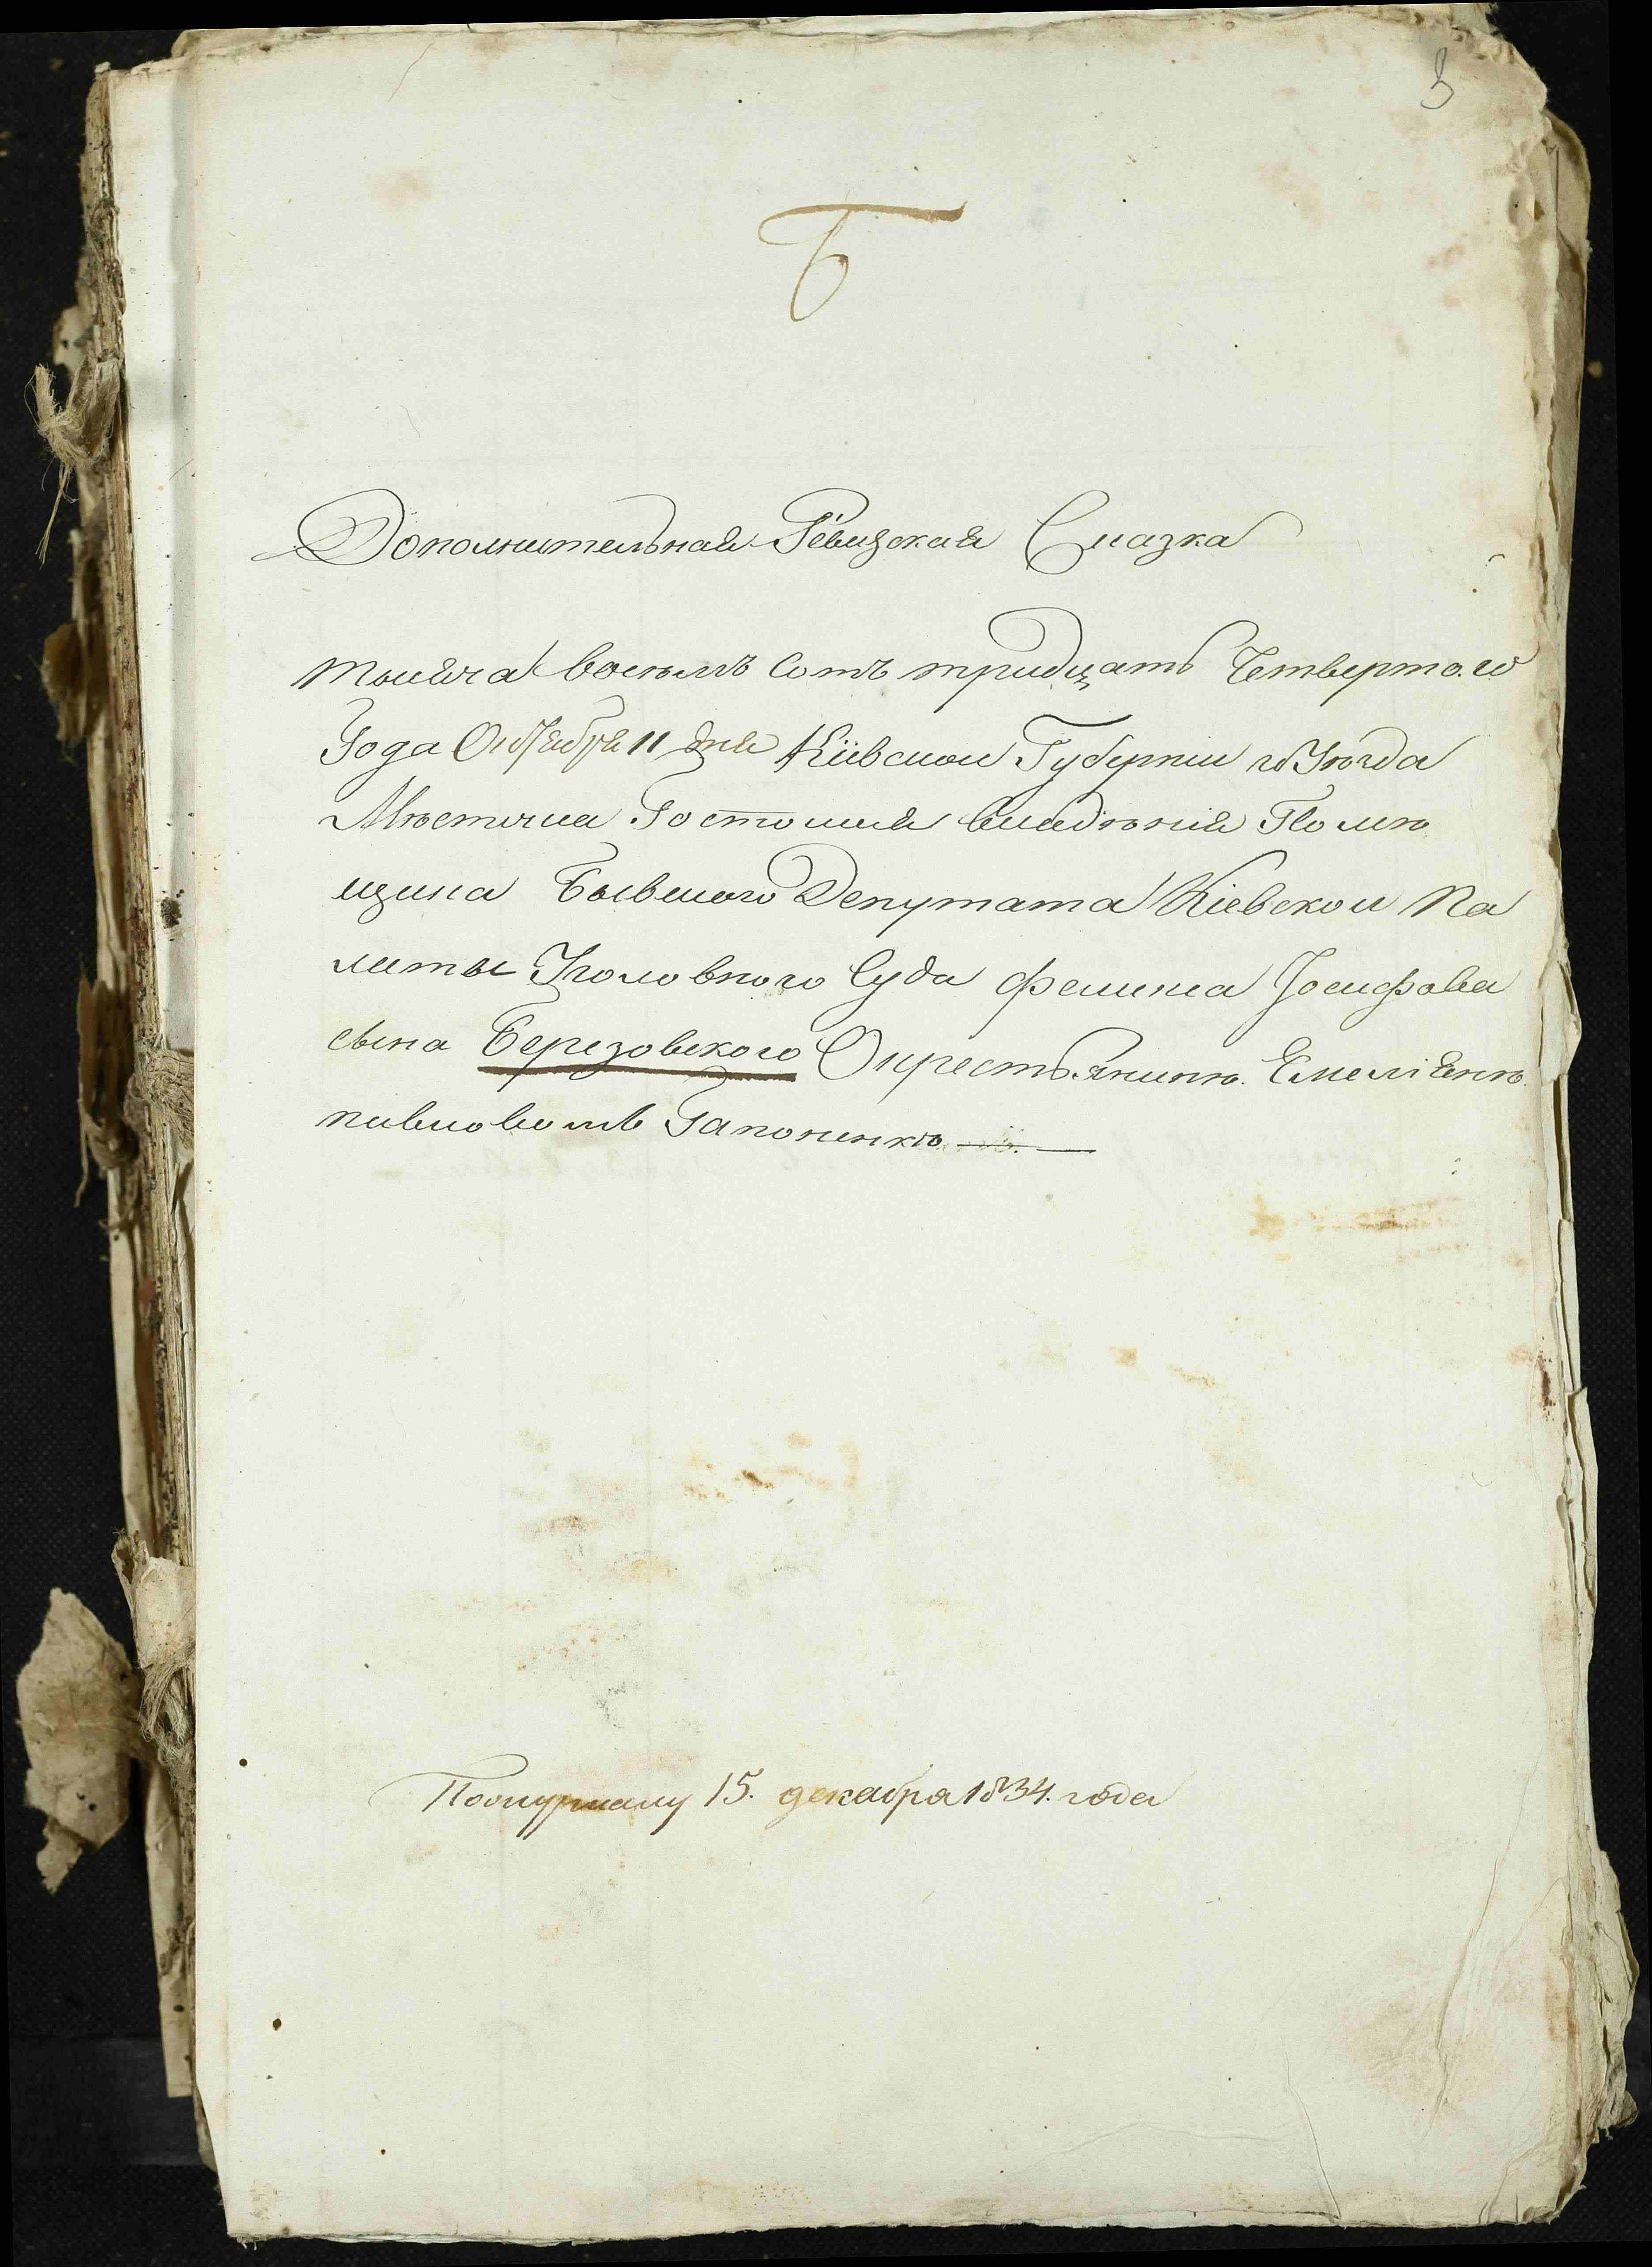 3
Б
Дополнительная Ревизская Сказка
тысяча восемь сотъ тридцать Четвертого
Года Октября 11 дня Кіевской Губерніи и Уезда
Мѣстечка Гостомля владѣнія Помѣ
щика Бывшого Депутата Кіевской Па
латы Уголовного Суда феликса Іосифова
сына Березовского Окрестьянинѣ Емеліянѣ
павловомъ Гапоненкѣ
15. декабря 1834. года